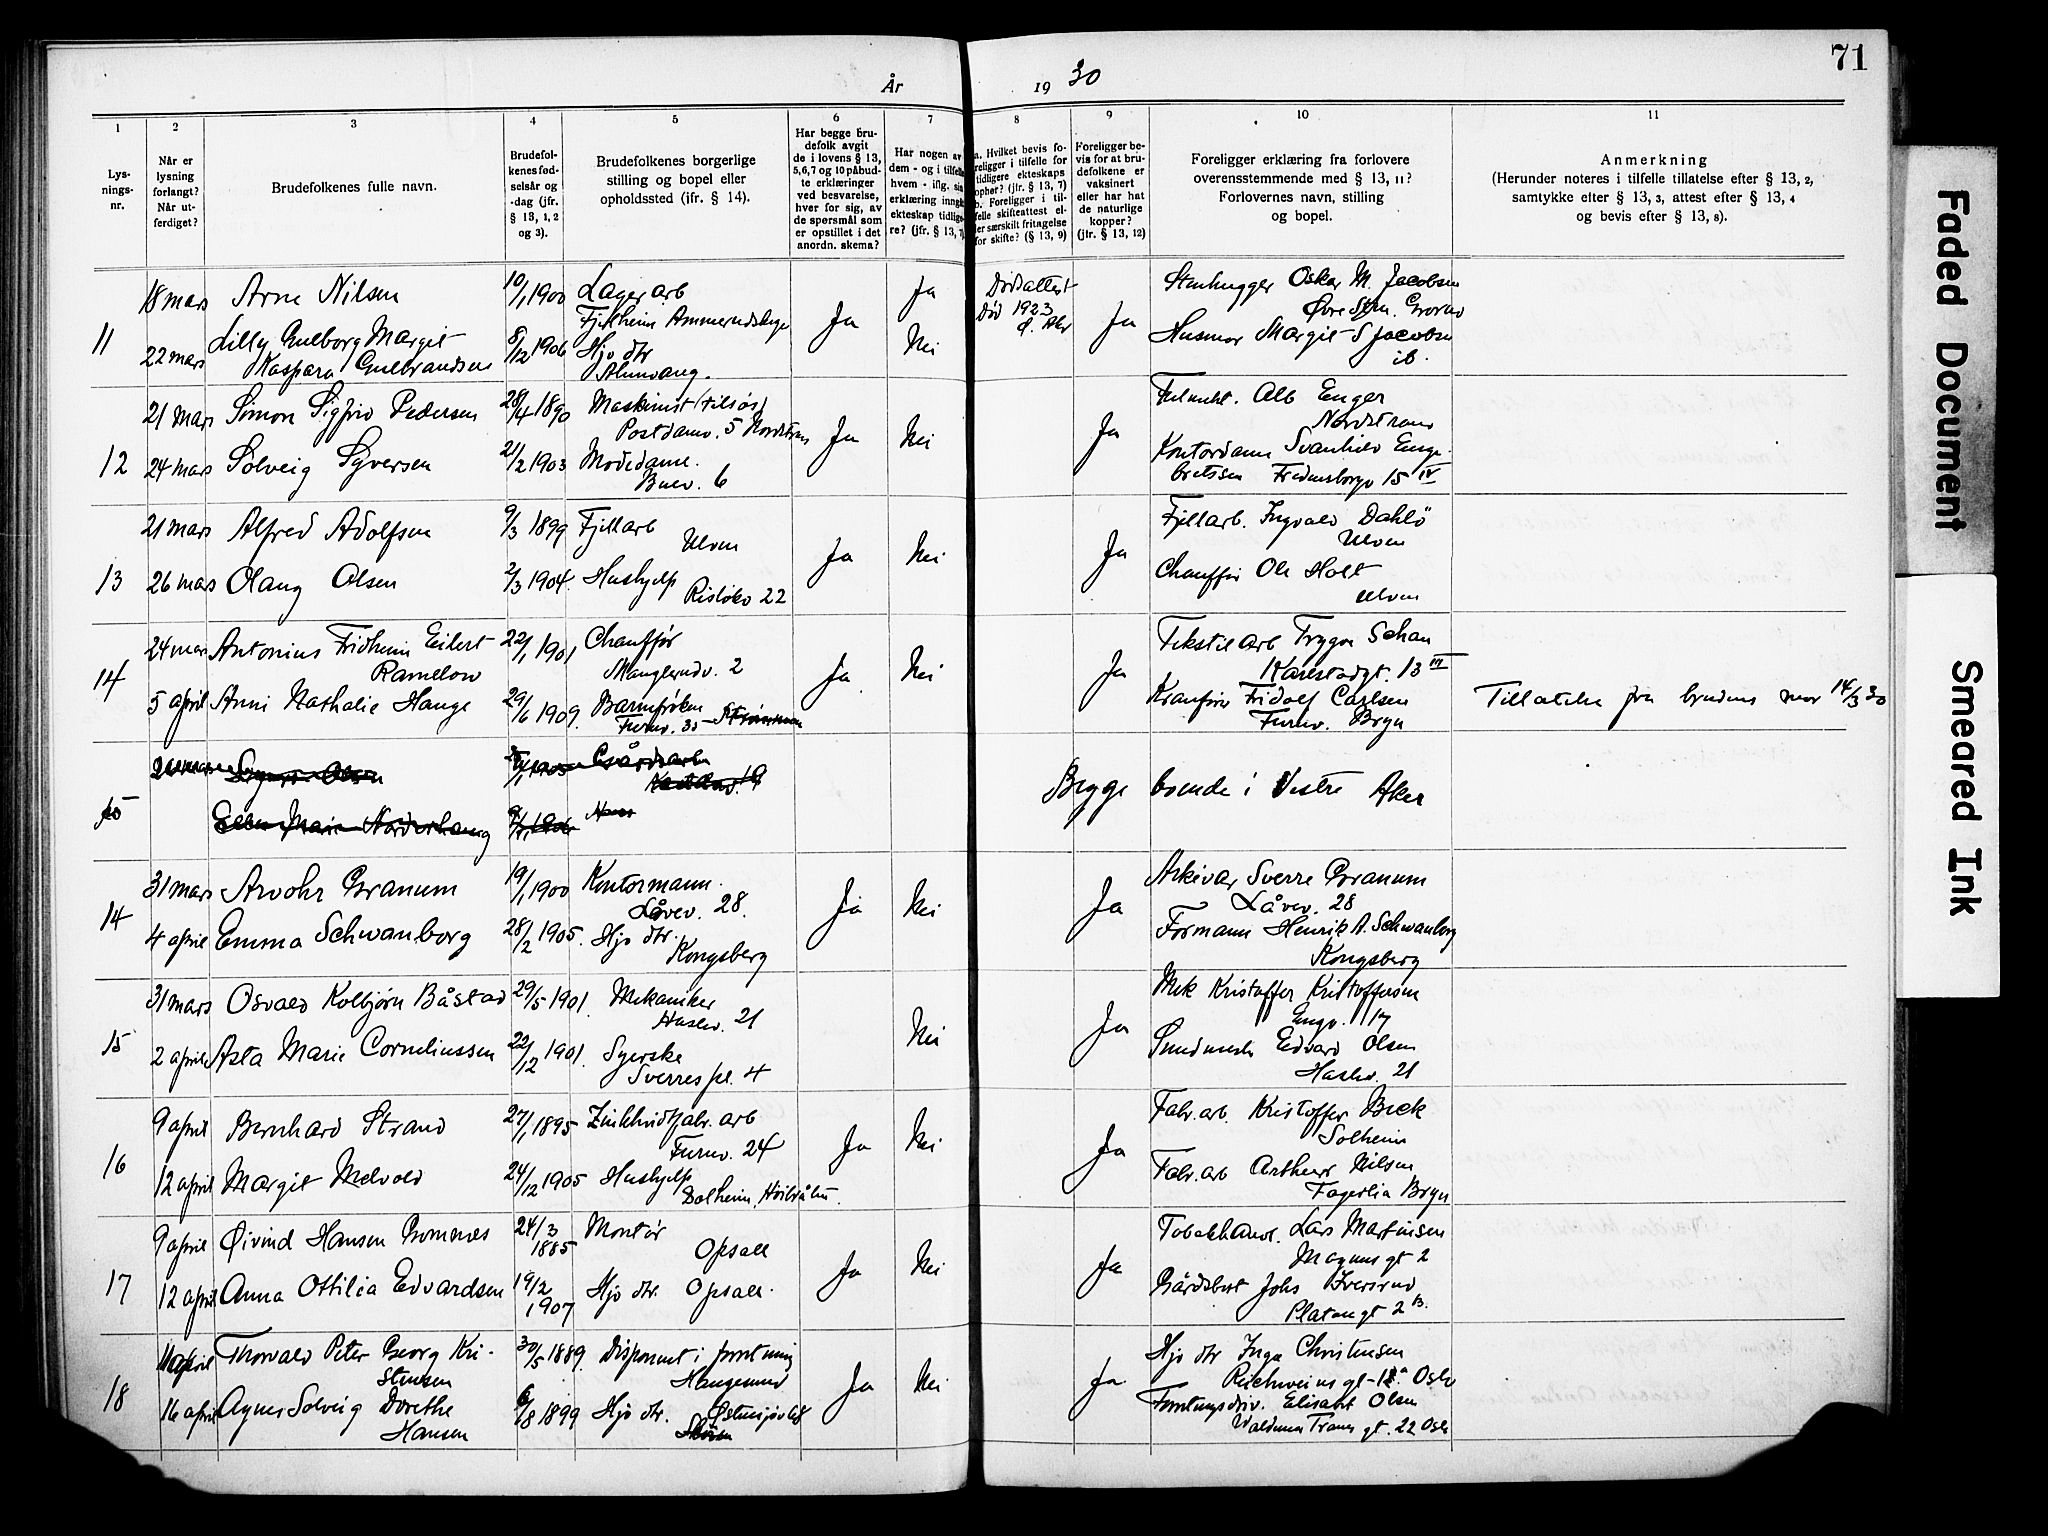 71
År 1930
1 2 3 4 5 6 7 8 9 10 11
Lys-
nings-
nr.
Når er
lysning
forlangt?
Når ut-
ferdiget?
Brudefolkenes fulle navn.
Brudefol-
kenes fød-
selsår og
-dag (jfr.
§ 13, 1, 2
og 3).
Brudefolkenes borgerlige
stilling og bopel eller
opholdssted (jfr. § 14).
Har begge bru-
defolk avgit
de i lovens § 13,
5,6,7 og 10 påbud-
te erklæringer
ved besvarelse,
hver for sig, av
de spørsmål som
er opstillet i det
anordn. skema?
Har nogen av
dem - og i tilfelle
hvem - iflg. sin
erklæring inngått
ekteskap tidlige-
re? (jfr. § 13, 7)
a. Hvilket bevis fo-
religger i tilfelle for
tidligere ekteskaps
ophør? (jfr. § 13, 7)
b. Foreligger i til-
felle skifteattest el-
ler særskilt fritagelse
for skifte? (§ 13, 9)
Foreligger be-
vis for at bru-
defolkene er
vaksinert
eller har hat
de naturlige
kopper?
(jfr. § 13, 12)
Foreligger erklæring fra forlovere
overensstemmende med § 13, 11?
Forlovernes navn, stilling
og bopel.
Anmerkning
(Herunder noteres i tilfelle tillatelse efter § 13, 2,
samtykke efter § 13, 3, attest efter § 13, 4
og bevis efter § 13, 8).
11
18 mars Arne Nilsen 10/1 1900 Lagerarb
Ja Ja Dødsattest
Død 1923
Ja
Stenhugger Oskar M. Jacobsen
22 mars Lilly Gulborg Margit
Kaspara Gulbrandsen 8/12 1906 Hjv dtr
Alunvang.
Nei
Husmor Margit S Jacobsen
ib.
12
21 mars Simon Sigfrid Pedersen 28/4 1890 Maskinist (tilsøs)
5 Nordstrand
Ja Nei Ja
Alb Enger
Nordstrand
24 mars Solveig Syversen 21/2 1903 Motedame.
6
Kontordame Svanhild Enge-
bretsen Fredensborgv 15 IV
13
21 mars Alfred Adolfsen 9/3 1899 Fjellarb
Ulven
Ja Nei Ja
Fjellarb. Ingvald Dahlö
Ulven
26 mars Olaug Olsen 2/3 1904. Hushjelp
Risløkv 22
Chauffør Ole Holt
Ulven
14
24 mars Antonius Fridheim Eilert
Ramelow 22/1 1901 Chauffør
Manglerudv. 2
Ja Nei Ja
Tekstilarb Trygve Schau
Karlstadgt. 13 III
5 april Anni Nathalie Hauge 29/6 1909. Barnefrøken
Furuv. 35
Kranfører Fridolf Carlsen
Furuv. Bryn
Tillatelse fra brudens mor 14/3 30
15
Olsen
Marie Norderhaug
Begge boende i Vestre Aker
14
31 mars Arvohr Granum 19/1 1900 Kontormann.
Låvev. 28.
Ja Nei Ja
Arkivar Sverre Granum
Låvev. 28
4 april Emma Schwanborg 28/2 1905. Hjv dtr.
Kongsberg
Formann Henrik A. Schwanborg
Kongsberg
15
31 mars Osvald Kolbjørn Båstad 29/5 1901. Mekaniker
Haslev. 21
Nei Ja
Mek Kristoffer Kristoffersen
Engv. 17
2 april Asta Marie Corneliussen 22/12 1901. Syerske
Sverres pl. 4
Edvard Olsen
Haslev. 21
16
9 april Bernhard Strand 27/1 1895 Zinkhvidtfabr. arb
Furuv. 24
Ja Nei Ja
Fabr. arb Kristoffer Bek
Solheim
12 april Margit Melvold 24/12 1905 Hushjelp
Fabr. arb Arthur Nilsen
Fagerlia Bryn
17
9 april Øivind Hansen Gomnæs 24/3
1885 Montør
Opsall
Ja Nei Ja
Tobakhandl. Lars Martinsen
Magnus gt 2
12 april Anna Ottilia Edvardsen 19/2
1907 Hjv dtr. Opsall.
Gårdsbest Johs Iversrud
Platou gt 2 B.
18
11 april Thorvald Peter Georg Kri-
stensen 30/5 1889. Disponent i forretning
Haugesund
Ja Nei Ja
Hjv dtr Inga Christensen
Oslo
16 april Agnes Solveig Dorethe
Hansen 6/8 1899 Hjv dtr.
Elisabet Olsen
Waldemar Thranes gt. 22 Oslo
Faded Document
Smeared Ink